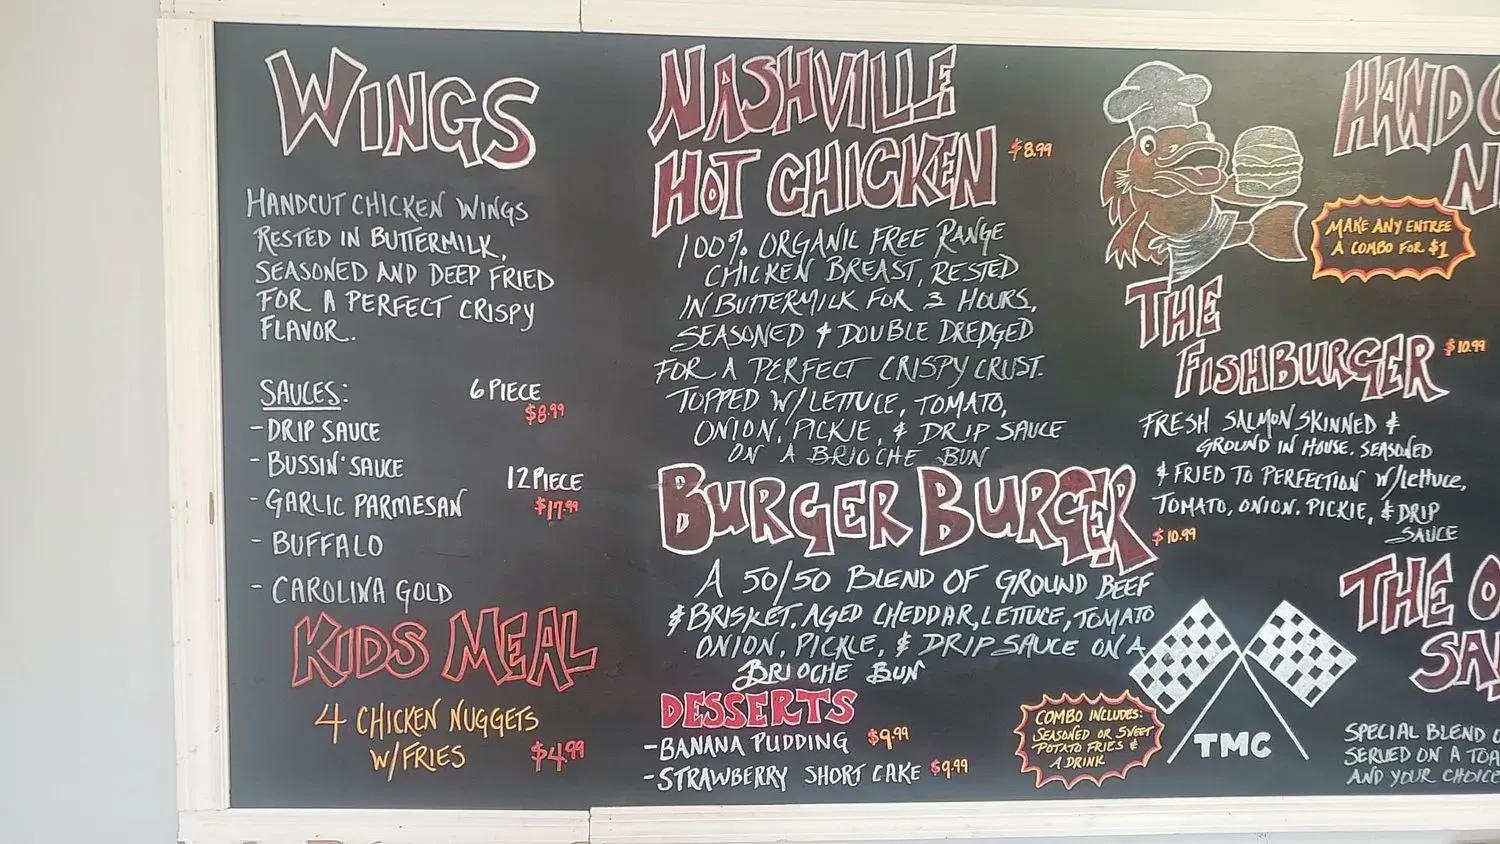 WINGS
HANDCUT CHICKEN WINGS
RESTED IN BUTTERMILK,
SEASONED AND DEEP FRIED
FOR A PERFECT CRISPY
FLAVOR.
SAUCES:
- DRIP SAUCE
- BUSSIN' SAUCE
- GARLIC PARMESAN
- BUFFALO
- CAROLINA GOLD
6 PIECE
$8.99
12 PIECE
$17.99
KIDS MEAL
4 CHICKEN NUGGETS
W/FRIES $4.99
NASHVILLE
HOT CHICKEN $8.99
100% ORGANIC FREE RANGE
CHICKEN BREAST, RESTED
IN BUTTERMILK FOR 3 HOURS,
SEASONED & DOUBLE DREDGED
FOR A PERFECT CRISPY CRUST.
TOPPED W/LETTUCE, TOMATO,
ONION, PICKLE, & DRIP SAUCE
ON A BRIOCHE BUN
BURGER BURGER $10.99
A 50/50 BLEND OF GROUND BEEF
& BRISKET. AGED CHEDDAR, LETTUCE, TOMATO
ONION, PICKLE, & DRIP SAUCE ON A
BRIOCHE BUN
DESSERTS
- BANANA PUDDING $9.99
- STRAWBERRY SHORT CAKE $9.99
COMBO INCLUDES:
SEASONED OR SWEET
POTATO FRIES &
A DRINK
THE
FISHBURGER $10.99
FRESH SALMON SKINNED &
GROUND IN HOUSE. SEASONED
& FRIED TO PERFECTION W/LETTUCE,
TOMATO, ONION. PICKLE, & DRIP
SAUCE
TMC
HAND
N
MAKE ANY ENTREE
A COMBO FOR $1
THE O
SA
SPECIAL BLEND
SERVED ON A TOA
AND YOUR CHOICE